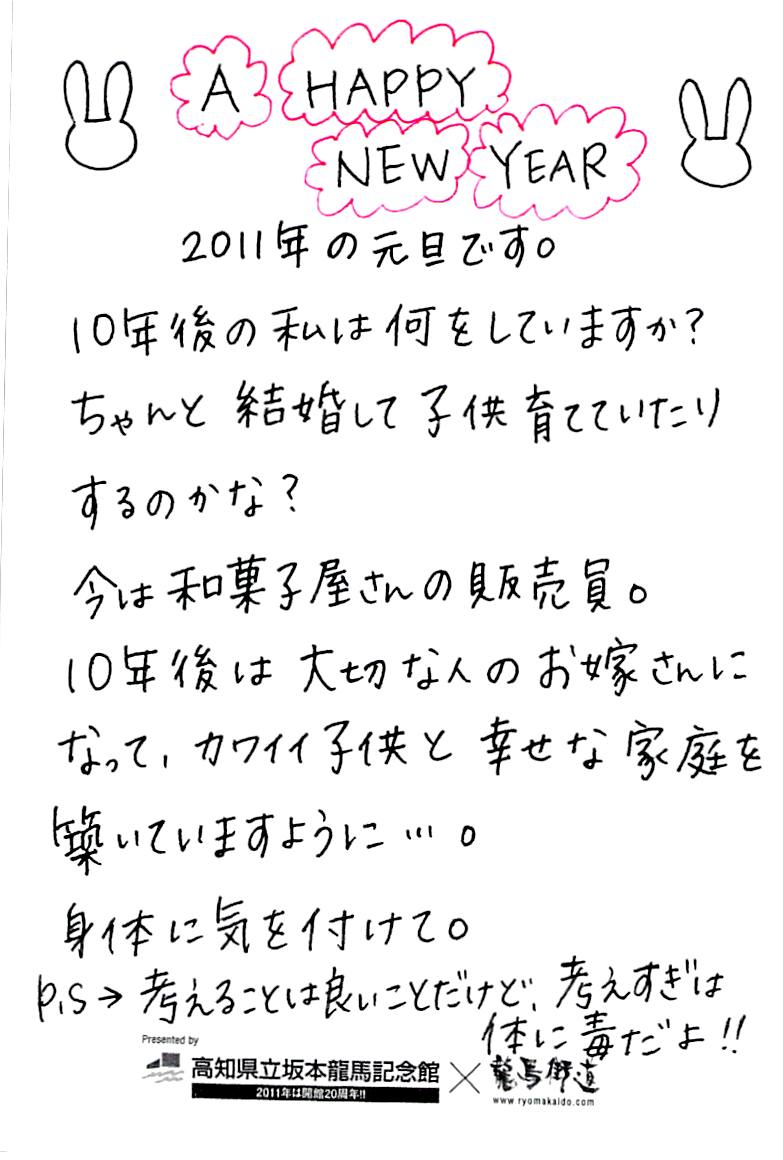 A HAPPY
NEW YEAR
2011年の元旦です。
10年後の私は何をしていますか?
ちゃんと結婚して子供育てていたり
するのかな?
今は和菓子屋さんの販売員。
10年後は大切な人のお嫁さんに
なって、カワイイ子供と幸せな家庭を
築いていますように…。
身体に気を付けて。
P.S→考えることは良いことだけど、考えすぎは
体に毒だよ!!
Presented by
高知県立坂本龍馬記念館×龍馬街道
2011年は開館20周年!!
www.ryomakaido.com